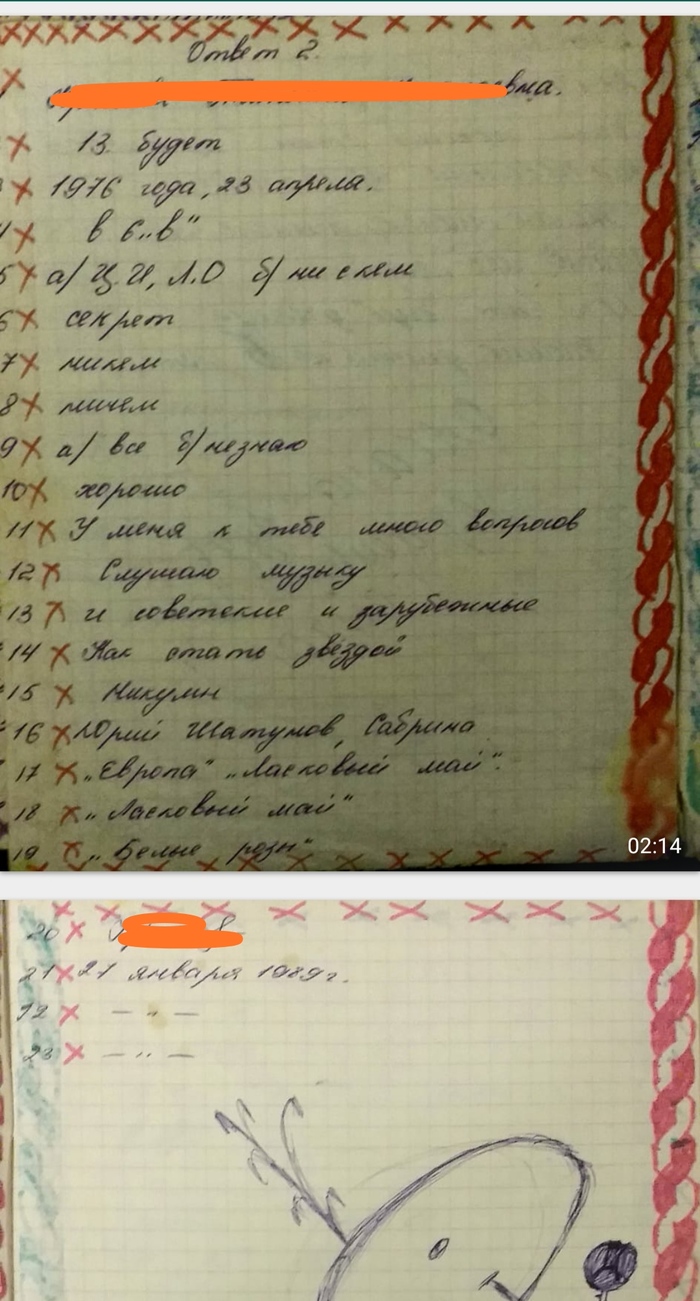 Ответ 2.
вна.
13 будет
3 1976 года, 23 апреля.
4 в 6 „в"
5 а/ Ц.И, Л.О б/ ни с кем
6 секрет
7 никем
8 ничем
9 а/ все б/ незнаю
10 хорошо
11 У меня к тебе много вопросов
12 Слушаю музыку
13 и советские и зарубежные
14 Как стать звездой
15 Никулин
16 Юрий Шатунов, Сабрина
17 „Европа" „Ласковый май".
18 „Ласковый май"
19 „Белые розы"
02:14
20
21 21 января 1989г.
22 — " —
23 — " —